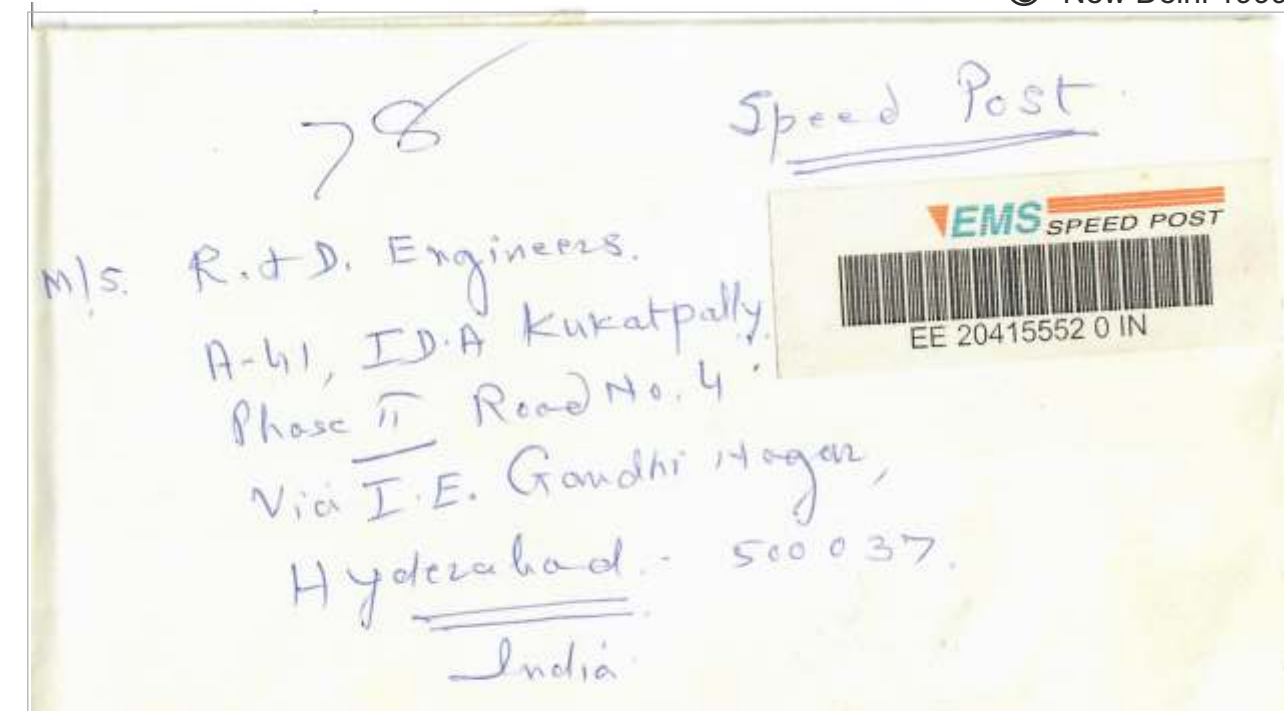 New Delhi
78
Speed Post.
EMS SPEED POST
EE 20415552 0 IN
M/s. R. & D. Engineers.
A-41, I.D.A Kukatpally.
Phase II Road No. 4
Via I.E. Gandhi Nagar,
Hyderabad - 500037.
India